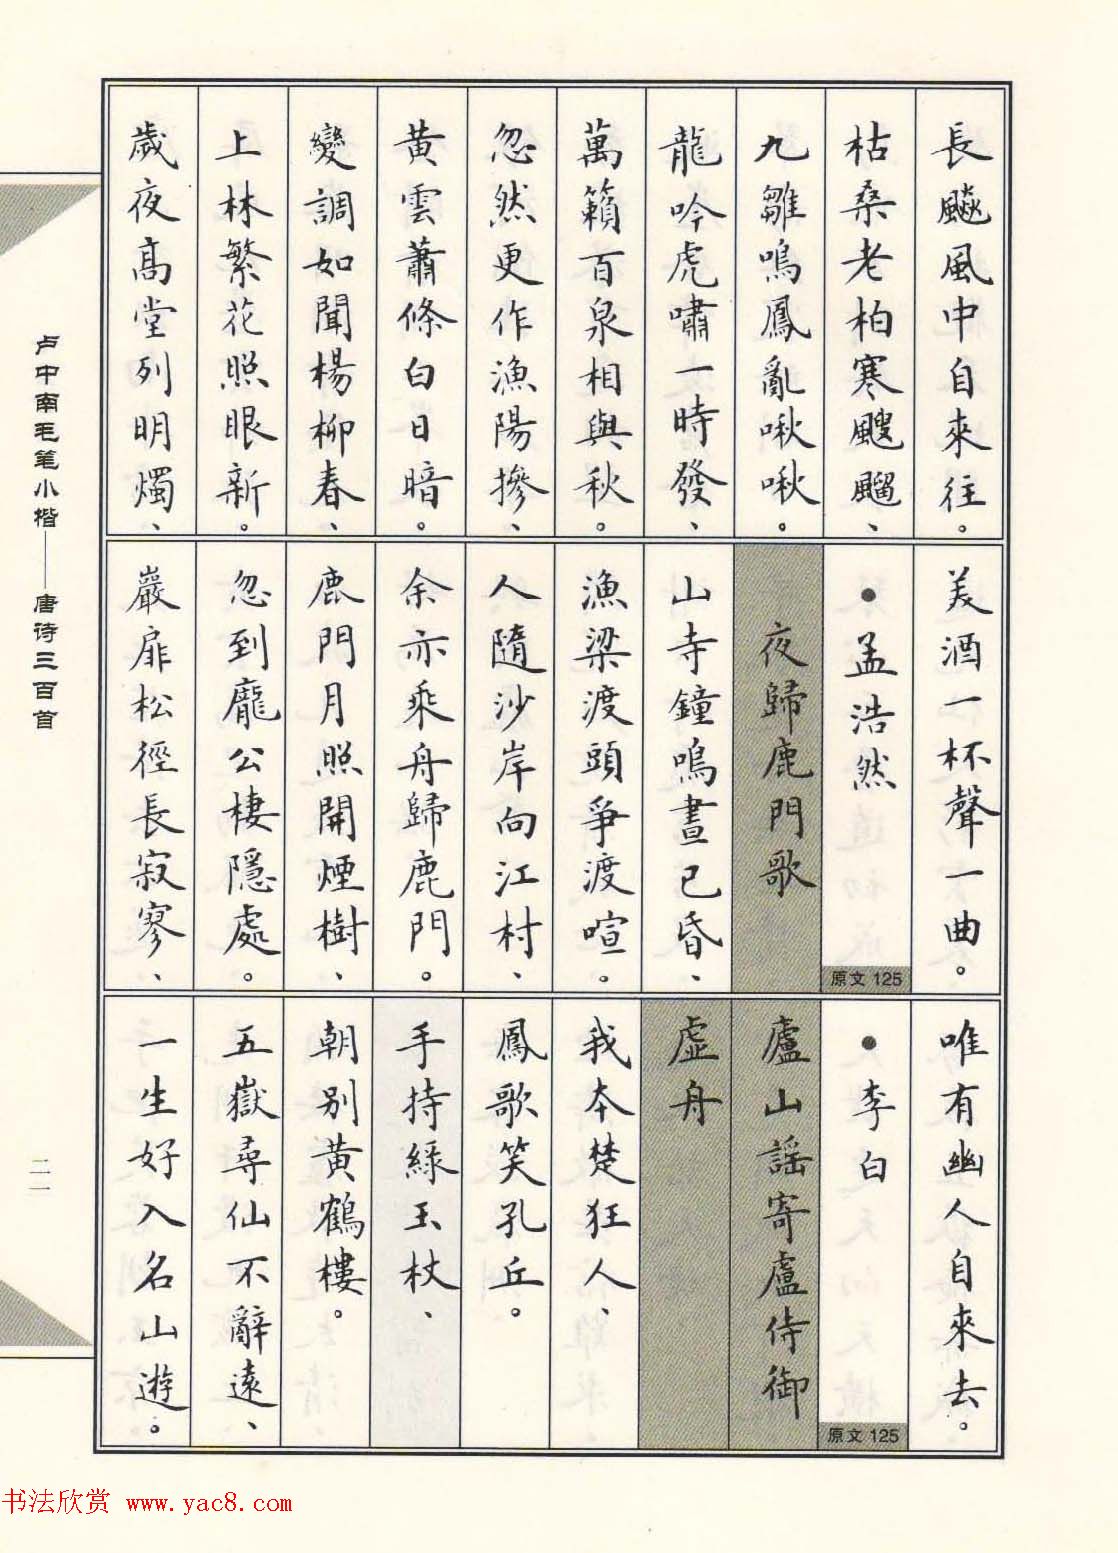 長飈風中自來往。
枯桑老柏寒颼飀、
九雛鳴鳳亂啾啾。
龍吟虎嘯一時發、
萬籟百泉相與秋。
忽然更作漁陽摻、
黃雲蕭條白日暗。
變調如聞楊柳春、
上林繁花照眼新。
歲夜高堂列明燭、
美酒一杯聲一曲。
●孟浩然
原文125
夜歸鹿門歌
山寺鐘鳴晝已昏、
漁梁渡頭爭渡喧。
人隨沙岸向江村、
余亦乘舟歸鹿門。
鹿門月照開煙樹、
忽到龐公棲隱處。
巖扉松徑長寂寥、
唯有幽人自來去。
●李白
原文125
廬山謠寄盧侍御
虛舟
我本楚狂人、
鳳歌笑孔丘。
手持綠玉杖、
朝別黃鶴樓。
五嶽尋仙不辭遠、
一生好入名山遊。
卢中南毛笔小楷——唐诗三百首
二一
书法欣赏 www.yac8.com